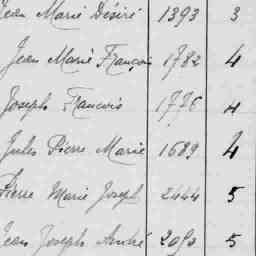 Jean Marie Désiré 1393 3
Jean Marie François 1782 4
Joseph Francois 1776 4
Jules Pierre Marie 1689 4
Pierre Marie Joseph 2444 5
Jean Joseph André 2090 5